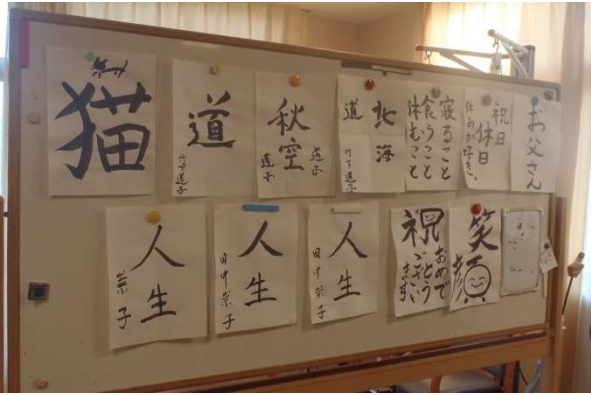 猫
道
竹下道子
秋空
道子
道子
北海
道
竹下道子
寝ること
食うこと
休むこと
祝日
休日
休みが好き。
お父さん
人生
栄子
人生
田中栄子
人生
田中栄子
祝
おめで
とう
ござい
ます
笑
顔